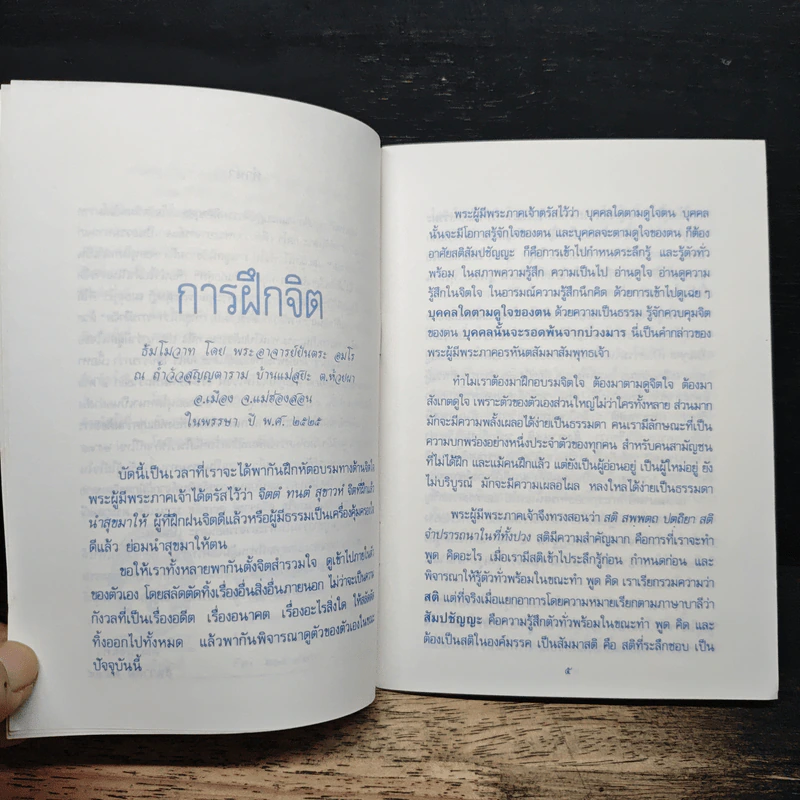 การฝึกจิต
ธัมโมวาท โดย พระอาจารย์ยันตระ อมโร
ณ ถ้ำวัวสุญญตาราม บ้านแม่สุยะ ต.ห้วยผา
อ.เมือง จ.แม่ฮ่องสอน
ในพรรษา ปี พ.ศ. ๒๕๒๕
บัดนี้เป็นเวลาที่เราจะได้พากันฝึกหัดอบรมทางด้านจิตใจ
พระผู้มีพระภาคเจ้าได้ตรัสไว้ว่า จิตตํ ทนตํ สุขาวหํ จิตที่ฝึกแล้ว
นำสุขมาให้ ผู้ที่ฝึกฝนจิตดีแล้วหรือผู้มีธรรมเป็นเครื่องคุ้มครอง
ดีแล้ว ย่อมนำสุขมาให้ตน
ขอให้เราทั้งหลายพากันตั้งจิตสำรวมใจ ดูเข้าไปภายใน
ของตัวเอง โดยสลัดตัดทิ้งเรื่องอื่นสิ่งอื่นภายนอก ไม่ว่าจะเป็นความ
กังวลที่เป็นเรื่องอดีต เรื่องอนาคต เรื่องอะไรสิ่งใด ให้สลัดตัด
ทิ้งออกไปทั้งหมด แล้วพากันพิจารณาดูตัวของตัวเองในขณะ
ปัจจุบันนี้
พระผู้มีพระภาคเจ้าตรัสไว้ว่า บุคคลใดตามดูใจตน บุคคล
นั้นจะมีโอกาสรู้จักใจของตน และบุคคลจะตามดูใจของตน ก็ต้อง
อาศัยสติสัมปชัญญะ ก็คือการเข้าไปกำหนดระลึกรู้ และรู้ตัวทั่ว
พร้อม ในสภาพความรู้สึก ความเป็นไป อ่านดูใจ อ่านดูความ
รู้สึกในจิตใจ ในอารมณ์ความรู้สึกนึกคิด ด้วยการเข้าไปดูเฉย ๆ
บุคคลใดตามดูใจของตน ด้วยความเป็นธรรม รู้จักควบคุมจิต
ของตน บุคคลนั้นจะรอดพ้นจากบ่วงมาร นี่เป็นคำกล่าวของ
พระผู้มีพระภาคอรหันตสัมมาสัมพุทธเจ้า
ทำไมเราต้องมาฝึกอบรมจิตใจ ต้องมาตามดูจิตใจ ต้องมา
สังเกตดูใจ เพราะตัวของตัวเองส่วนใหญ่ไม่ว่าใครทั้งหลาย ส่วนมาก
มักจะมีความพลั้งเผลอได้ง่ายเป็นธรรมดา คนเรามีลักษณะที่เป็น
ความบกพร่องอย่างหนึ่งประจำตัวของทุกคน สำหรับคนสามัญชน
ที่ไม่ได้ฝึก และแม้คนฝึกแล้ว แต่ยังเป็นผู้อ่อนอยู่ เป็นผู้ใหม่อยู่ ยัง
ไม่บริบูรณ์ มักจะมีความเผลอไผล หลงใหลได้ง่ายเป็นธรรมดา
พระผู้มีพระภาคเจ้าจึงทรงสอนว่า สติ สพพตถ ปตถิยา สติ
จำปรารถนาในที่ทั้งปวง สติมีความสำคัญมาก คือการที่เราจะทำ
พูด คิดอะไร เมื่อเรามีสติเข้าไประลึกรู้ก่อน กำหนดก่อน และ
พิจารณาให้รู้ตัวทั่วพร้อมในขณะทำ พูด คิด เราเรียกรวมความว่า
สติ แต่ที่จริงเมื่อแยกอาการโดยความหมายเรียกตามภาษาบาลีว่า
สัมปชัญญะ คือความรู้สึกตัวทั่วพร้อมในขณะทำ พูด คิด และ
ต้องเป็นสติในองค์มรรค เป็นสัมมาสติ คือ สติที่ระลึกชอบ เป็น
๕